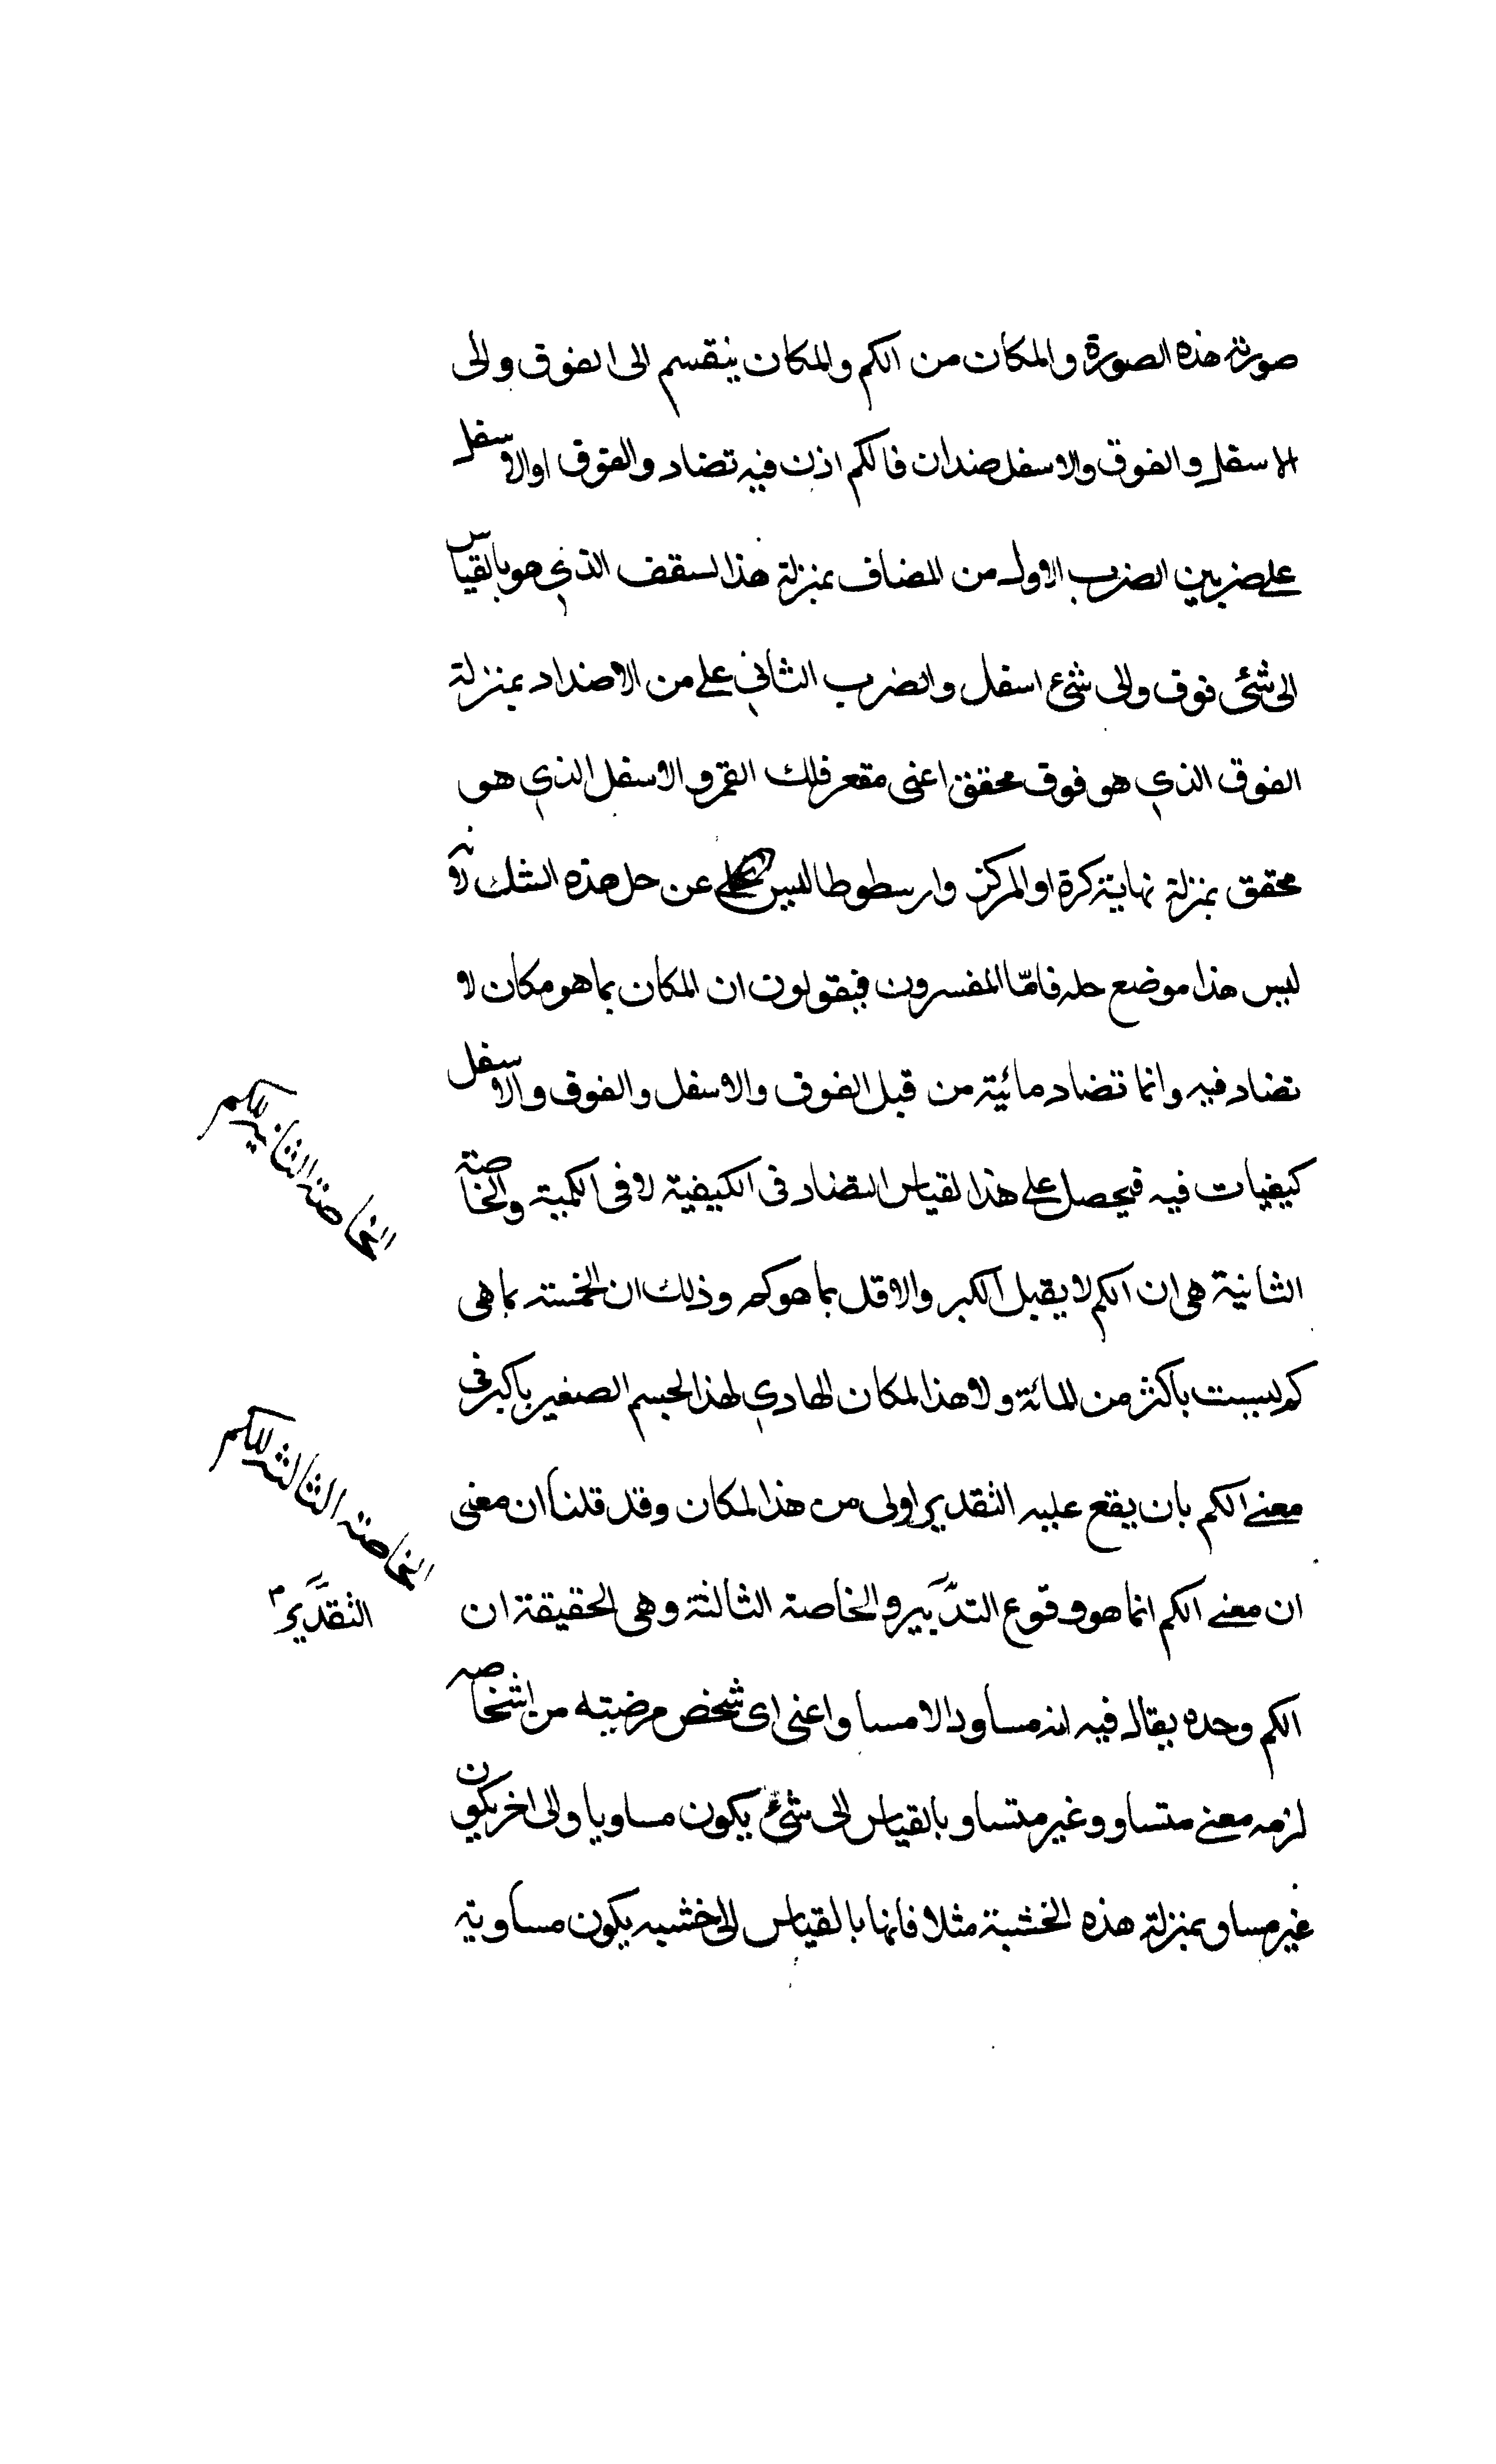 صورته هذه الصورة والمكان من الكم والمكان ينقسم الى الفوق والى
الاسفل والفوق والاسفل ضدان فالكم اذن فيه تضاد والفوق اوالاسفل
على ضربين الضرب الاول من المضاف بمنزلة هذا لسقف الذي هو بالقياس
الى شئى فوق والى شئ اسفل والضرب الثاني على من الاضداد بمنزلة
الفوق الذي هو فوق محقق اعنى مقعر فلك القمر والاسفل الذي هو
محقق بمنزلة نهاية كرة او المركز وارسطوطاليس عن حل هذه الشك لانه
ليس هذا موضع حله فامّا المفسرون فيقولون ان المكان بما هو مكان لا
تضاد فيه وانما تضاد مائية من قبل الفوق والاسفل والفوق والاسفل
كيفيات فيه فيحصل على هذا لقياس التضاد فى الكيفية لا فى الكمية والخاصة
الثانية هى ان الكم لا يقبل الكبر والاقل بما هو كم وذلك ان الخمسة بما هى
كم ليست باكثر من المائة ولا هذا المكان الهادي لهذا الجسم الصغير باكبر فى
معنے الكم بان يقع عليه التقدير اولى من هذا لمكان وقد قلنا ان معنى
ان معنے الكم انما هو وقوع التدبير والخاصة الثالثة وهى الحقيقة ان
الكم وحده يقال فيه انه مساو والا مسا واعنى اى شخص مرضيته من اشخاصه
لزمه معنے متساو وغير متساو بالقياس الى شئ يكون مساويا والى اخر يكون
غير مساو بمنزلة هذه الخشبة مثلا فانها بالقياس الى خشبه يكون مساوية
الخاصة الثانية للكم
الخاصة الثالثة للكم
التقدير